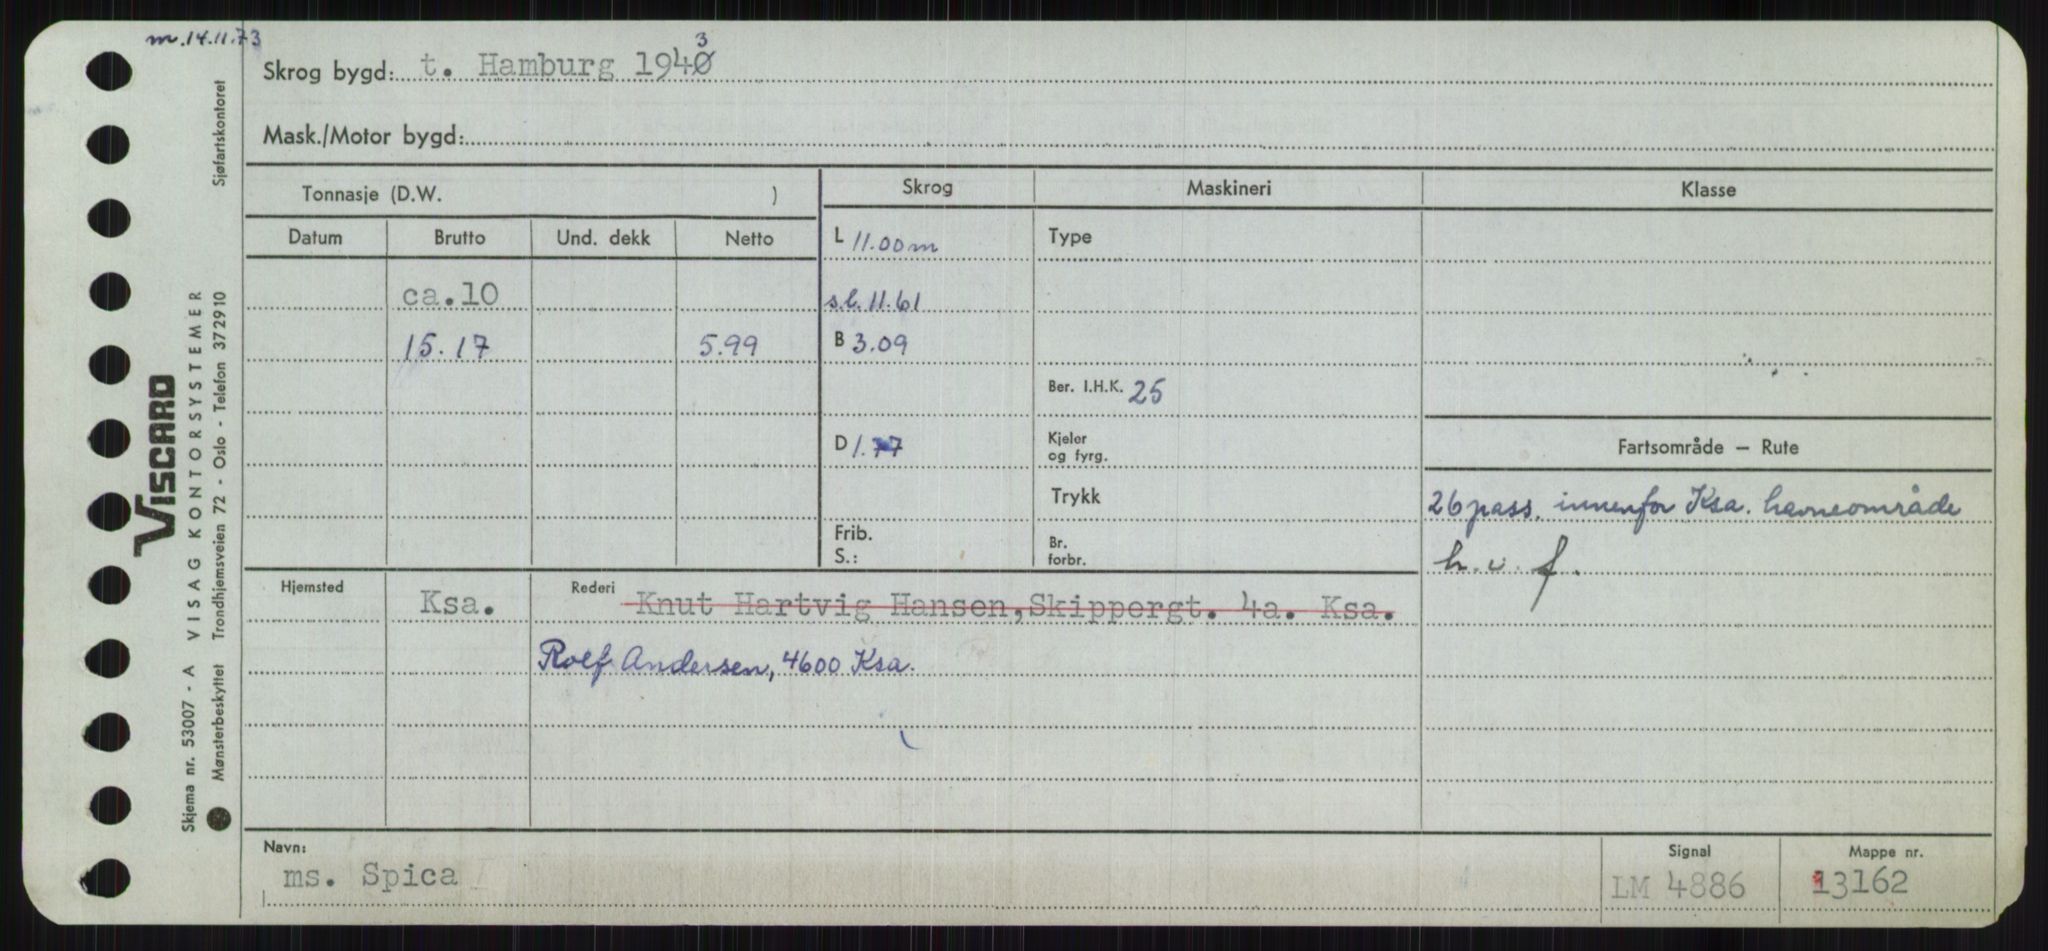 m. 14.11.73
Skrog bygd: t. Hamburg 1940 3
Mask./Motor bygd:
Tonnasje (D.W. )
Skrog Maskineri Klasse
Datum Brutto Und. dekk Netto
L 11.00 m Type
ca.10
s.l. 11.61
15.17 5.99
B 3.09
Ber. I.H.K. 25
D 1.77
Kjeler og fyrg.
Fartsområde – Rute
Trykk
26 pass. innenfor Ksa. havneområde
Frib.
S.:
Br. forbr.
h. v. f.
Hjemsted Ksa.
Rederi Knut Hartvig Hansen, Skippergt. 4a. Ksa.
Rolf Andersen, 4600 Ksa.
Navn: ms. Spica
Signal LM 4886
Mappe nr. 13162
Sjøfartskontoret
VISCARD
Skjema nr. 53007 - A VISAG KONTORSYSTEMER
Mønsterbeskyttet Trondhjemsveien 72 - Oslo - Telefon 372910